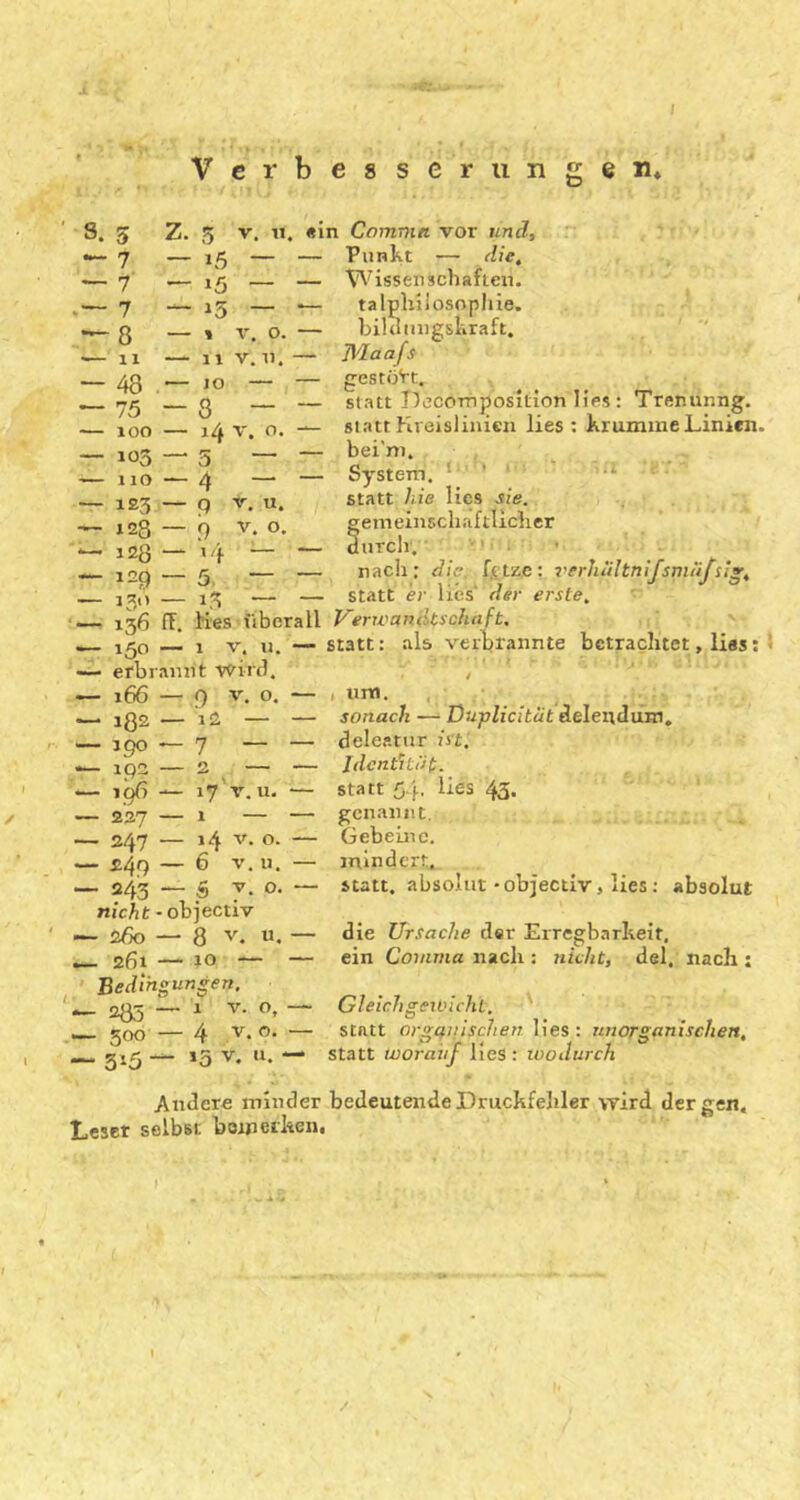 Verbesserungen.
S. 3 Z. 5 v. u. ein Comma vor und,
— 7 — 15 — — Punkt — die,
— 7 — 15 — — Wissenschaften.
— 7 — 13 — — talphilosophie.
— 8 — 1 v. o. — bildungskraft.
— 11 — 11 v. u. — Maaſs
— 48 — 10 — — gestört.
— 75 — 8 — — statt Decomposition lies: Trenunng.
— 100 — 14 v. o. — statt Kreislinien lies: krumme Linien.
— 103 — 3 — — bei'm.
— 110 — 4 — — System.
— 123 — 9 v. u. statt hie lies sie.
— 128 — 9 v. o. gemeinschaftlicher
— 128 — 14 — — durch.
— 129 — 5 — — nach: die ſetze: verhältniſsmäſsig.
— 130 — 13 — — statt er lies der erste.
— 136 ff. lies überall Verwandtschaft.
— 150 — 1 v. u. — statt: als verbrannte betrachtet, lies:
— erbrannt wird.
— 166 — 9 v. o. — um.
— 182 — 12 — — sonach — Duplicität delendum.
— 190 — 7 — — deleatur ist.
— 192 — 2 — — Identität.
— 196 — 17 v. u. — statt 54. lies 43.
— 227 — 1 — — genannt.
— 247 — 14 v. o. — Gebeine.
— 249 — 6 v. u. — mindert.
— 243 — 5 v. o. — statt. absolut-objectiv, lies: absolut
nicht-objectiv
— 260 — 8 v. u. — die Ursache der Erregbarkeit.
— 261 — 10 — — ein Comma nach: nicht, del. nach:
Bedingungen.
— 283 — 1 v. o. — Gleichgewicht.
— 300 — 4 v. o. — statt organischen lies: unorganischen.
— 315 — 13 v. u. — statt worauf lies: wodurch
Andere minder bedeutende Druckfehler wird der gen.
Leser selbst bemerken.